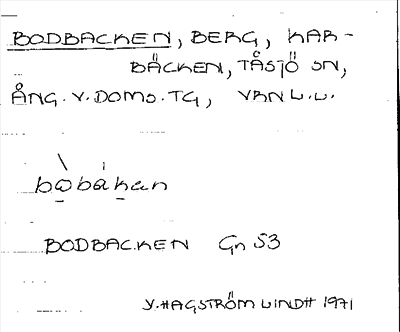 BODBACKEN, BERG, KAR-
BÄCKEN, TÅSJÖ SN,
ÅNG. V. DOMS. TG, VRN L.L.
bobakan
BODBACKEN Gn 53
Y. HAGSTRÖM LINDH 1971